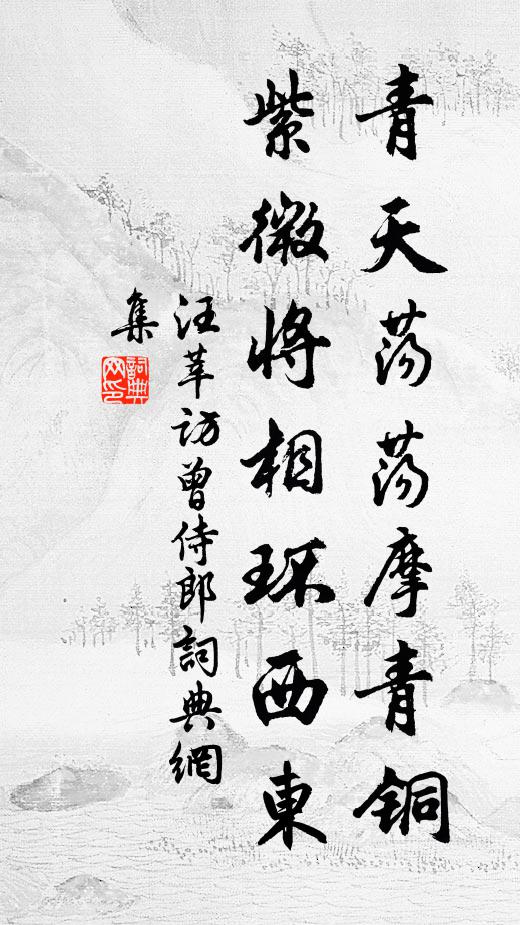 青天荡荡摩青铜
紫微将相环西東
汪莘访曾侍郎詞典網
集
詞典網印